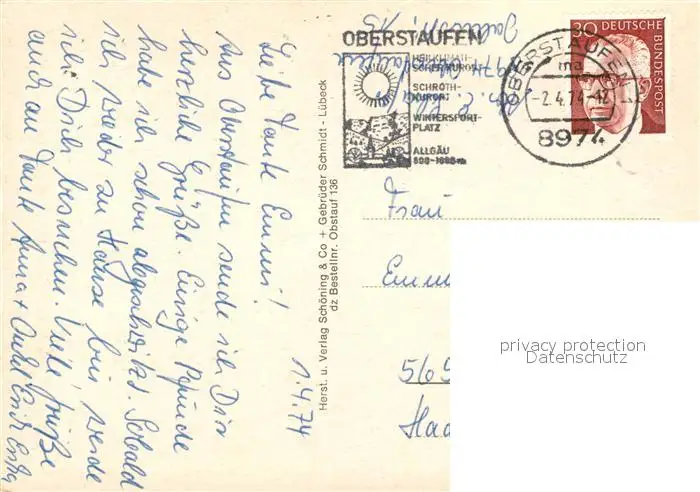 1.4.74
Liebe Tante Emmi!
Aus Oberstaufen sende ich Dir
herzliche Grüße. Einige Pfunde
habe ich schon abgeschwitzt. Sobald
ich wieder zu Hause bin werde
ich Dich besuchen. Viele Grüße
auch an Tante Anna + Onkel Erich
Herst. u. Verlag Schöning & Co + Gebrüder Schmidt - Lübeck
dz Bestellnr. Obstauf 136
OBERSTAUFEN
HEILKLIMATI-
SCHER KURORT
SCHROTH-
KURORT
WINTERSPORT-
PLATZ
ALLGÄU
800-1800m
OBERSTAUFEN
ma
-2.4.74-12
8974
30 DEUTSCHE
BUNDESPOST
Frau
Emm
565
Haa
privacy protection
Datenschutz